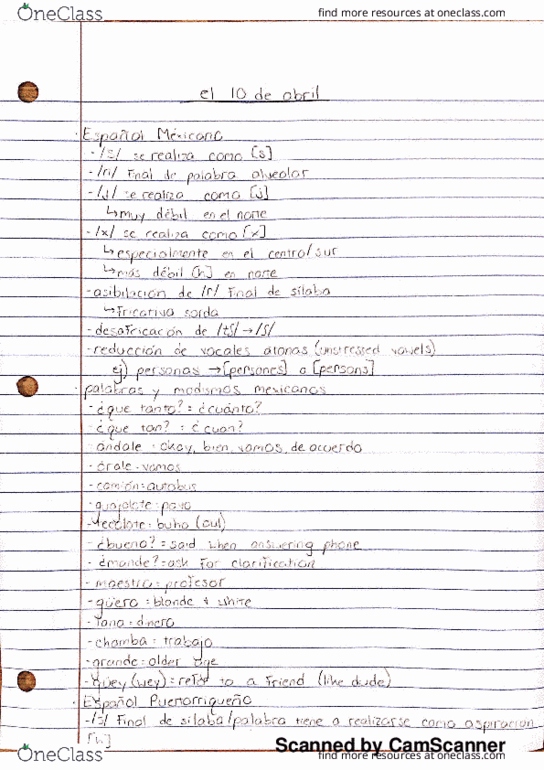 OneClass
find more resources at oneclass.com
el 10 de abril
· Español Mexicano
- /s/ se realiza como [s]
- /n/ final de palabra alveolar
- /ʝ/ se realiza como [ʝ]
↳ muy débil en el norte
- /x/ se realiza como [x]
↳ especialmente en el centro/sur
↳ más débil [h] en norte
- asibilación de /r/ final de sílaba
↳ fricativa sorda
- desafricación de /tʃ/ → /ʃ/
- reducción de vocales atonas (unstressed vowels)
ej) personas → [persones] a [persons]
· palabras y modismos mexicanos
- ¿que tanto? = ¿cuánto?
- ¿que tan? = ¿cuan?
- ándale = okay, bien, vamos, de acuerdo
- órale - vamos
- camión = autobus
- guajolote = pavo
- tecolote = buho (owl)
- ¿bueno? = said when answering phone
- ¿mande? = ask for clarification
- maestro = profesor
- güero = blonde + white
- lana = dinero
- chamba = trabajo
- grande = older age
- güey (wey) = refer to a friend (like dude)
· Español Puertorriqueño
- /s/ final de sílaba/palabra tiene a realizarse como aspiración
[h]
Scanned by CamScanner
OneClass
find more resources at oneclass.com